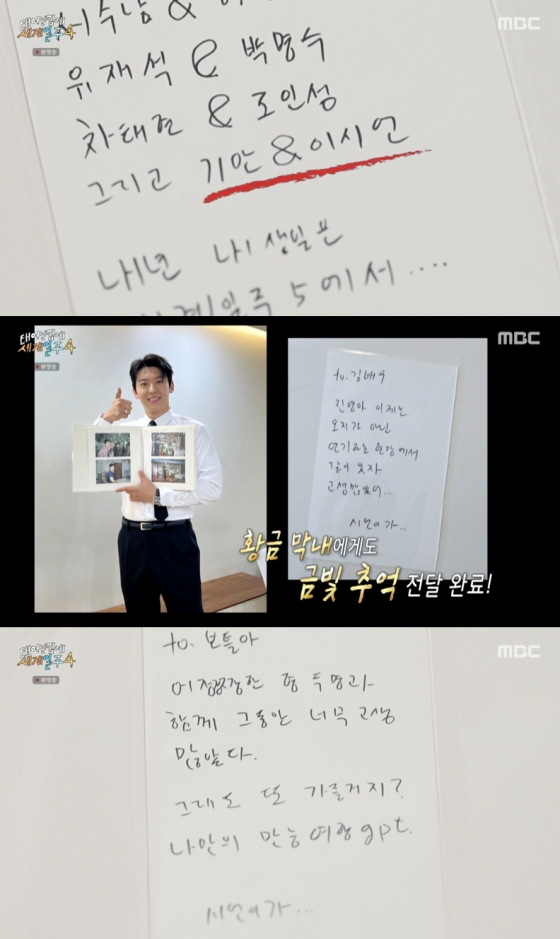 태어난김에
세계일주4
본방송
MBC
이수남 &
유재석 & 박명수
차태현 & 조인성
그리고 기안&이시언
내년 나 생일쯤
세계일주 5에서....
태어난김에
세계일주4
본방송
MBC
to. 김배우
진영아 이제는
오지가 아닌
연기하는 현장에서
같이 웃자
고생 많았어...
시언이가..
황금 막내에게도
금빛 추억 전달 완료!
태어난김에
세계일주4
본방송
MBC
to. 보틀아
어정쩡한 형 두명과
함께 그동안 너무 고생
많았다.
그래도 또 가줄거지?
나만의 만능 여행 gpt.
시언이가...